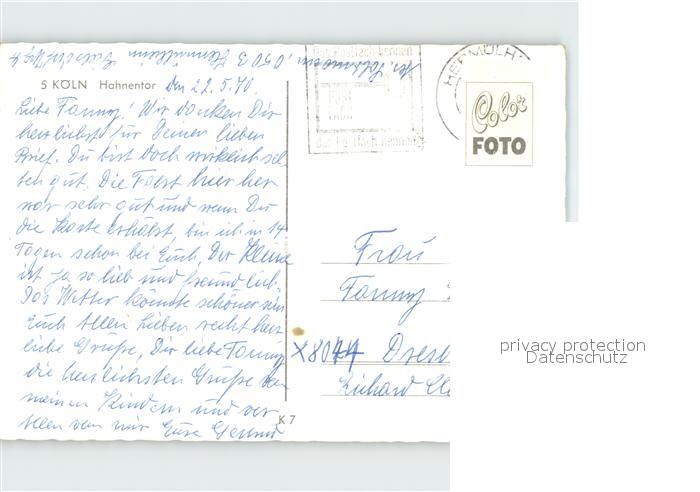 5 KÖLN Hahnentor
Den 22.5.70.
Liebe Fanny! Wir danken Dir
herzlichst für Deinen lieben
Brief. Du bist doch wirklich sel-
ten gut. Die Fahrt hier her
war sehr gut und wenn Du
die Karte erhälst, bin ich in 14
Tagen schon bei Euch. Der Kleine
ist ja so lieb und freundlich.
Das Wetter könnte schöner sein
Euch Allen Lieben recht herz
liche Grüße, Dir liebe Fanny
die herzlichsten Grüße von
meinen Kindern und vor
Allen von mir Eure
K 7
das Postfach nennen
HERMÜLH
Color
FOTO
Frau
Fanny
X8044 Dresd
Richard
privacy protection
Datenschutz